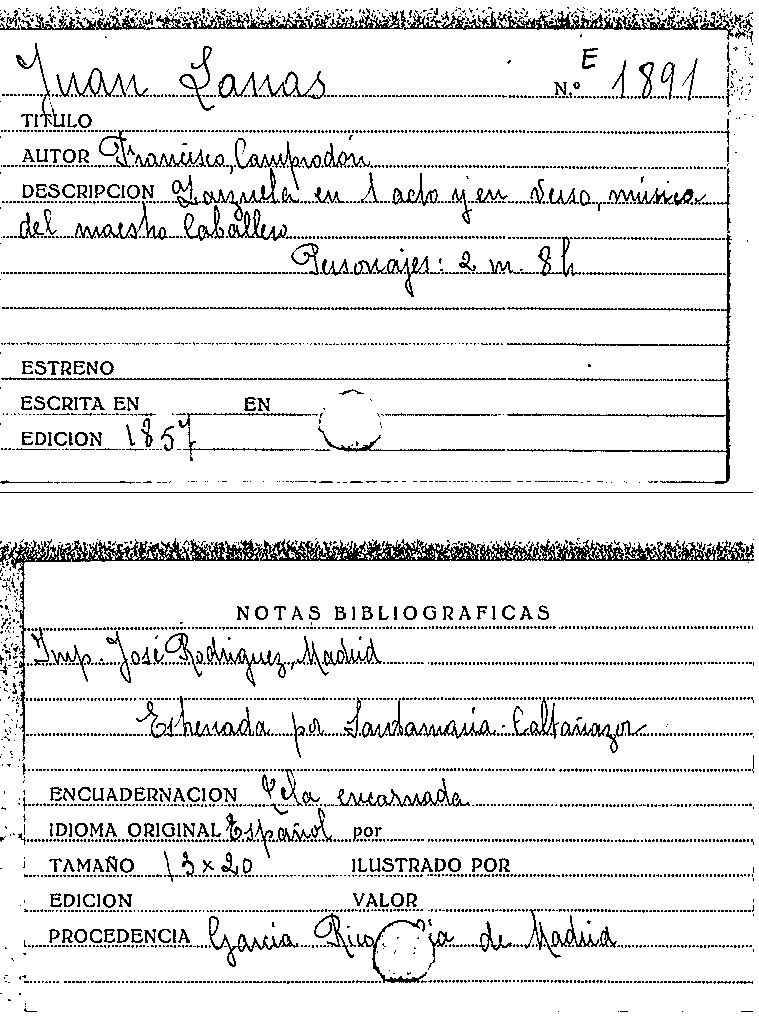 Juan Lanas N.º E 1891
TITULO
AUTOR Francisco Camprodón
DESCRIPCION Zarzuela en 1 acto y en verso, música
del maestro Caballero
Personajes: 2 m. 8 h
ESTRENO
ESCRITA EN EN
EDICION 1857
NOTAS BIBLIOGRAFICAS
Imp. José Rodriguez, Madrid
Estrenada por Santamaria-Caltañazor
ENCUADERNACION Tela encarnada
IDIOMA ORIGINAL Español por
TAMAÑO 13 x 20 ILUSTRADO POR
EDICION VALOR
PROCEDENCIA Garcia Rico de Madrid